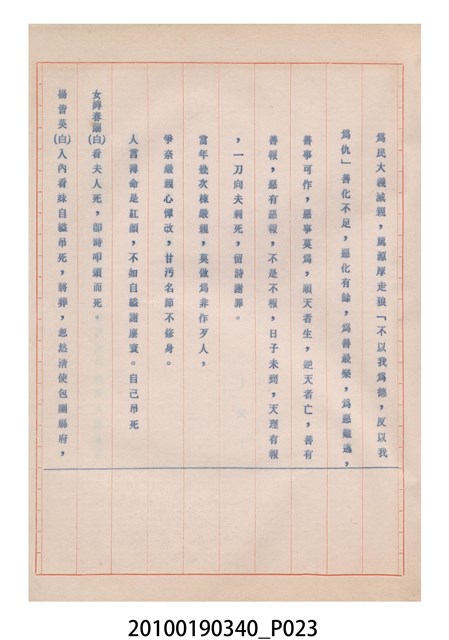 為民大義滅親，馬源厚走狼「不以我為德，反以我
為仇」善化不足，惡化有餘，為善最樂，為惡難逃，
善事可作，惡事莫為，順天者生，逆天者亡，善有
善報，惡有惡報，不是不報，日子未到，天理有報
，一刀向夫刺死，留詩謝罪。
當年幾次諫嚴親，莫做為非作歹人，
爭奈嚴親心憚改，甘污名節不修身。
人言薄命是紅顏，不如自縊謝塵寰。自己吊死
女婢春蘭(白)看夫人死，即時叩頭而死。
楊皆英(白)入內看妹自縊吊死，將葬，忽然清使包圍縣府，
20100190340_P023